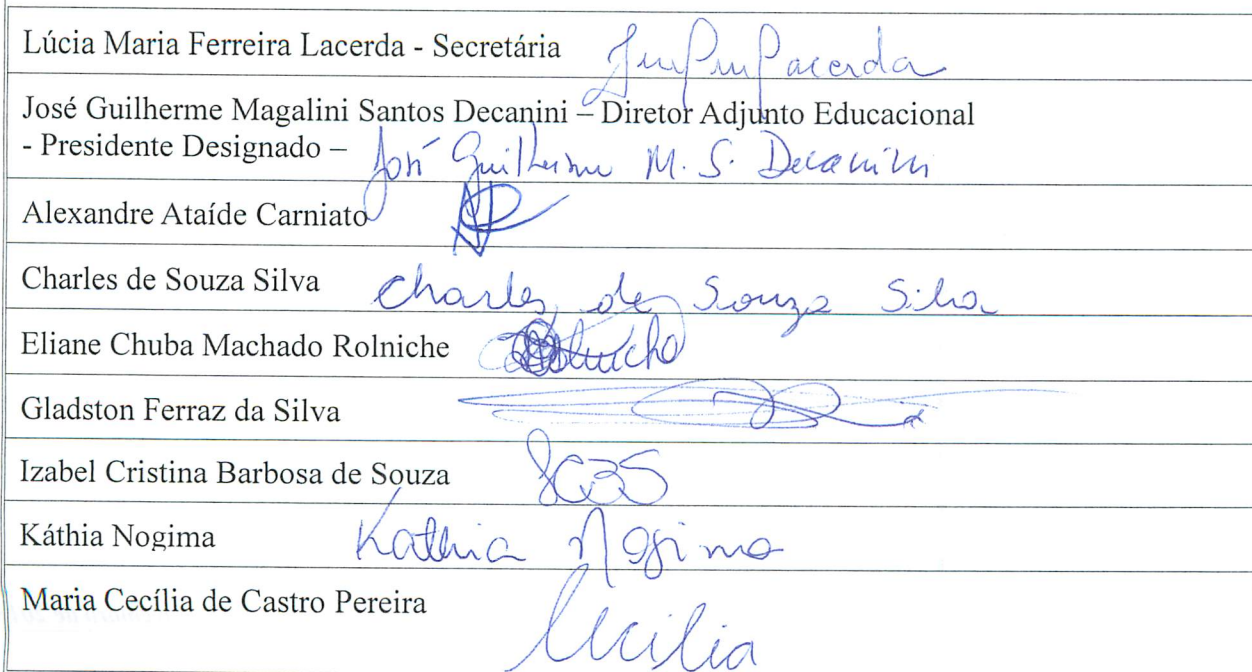 Lúcia Maria Ferreira Lacerda - Secretária Lacerda
José Guilherme Magalini Santos Decanini – Diretor Adjunto Educacional
- Presidente Designado – José Guilherme M. S. Decanini
Alexandre Ataíde Carniato
Charles de Souza Silva Charles de Souza Silva
Eliane Chuba Machado Rolniche
Gladston Ferraz da Silva
Izabel Cristina Barbosa de Souza
Káthia Nogima Kathia Nogima
Maria Cecília de Castro Pereira Cecilia